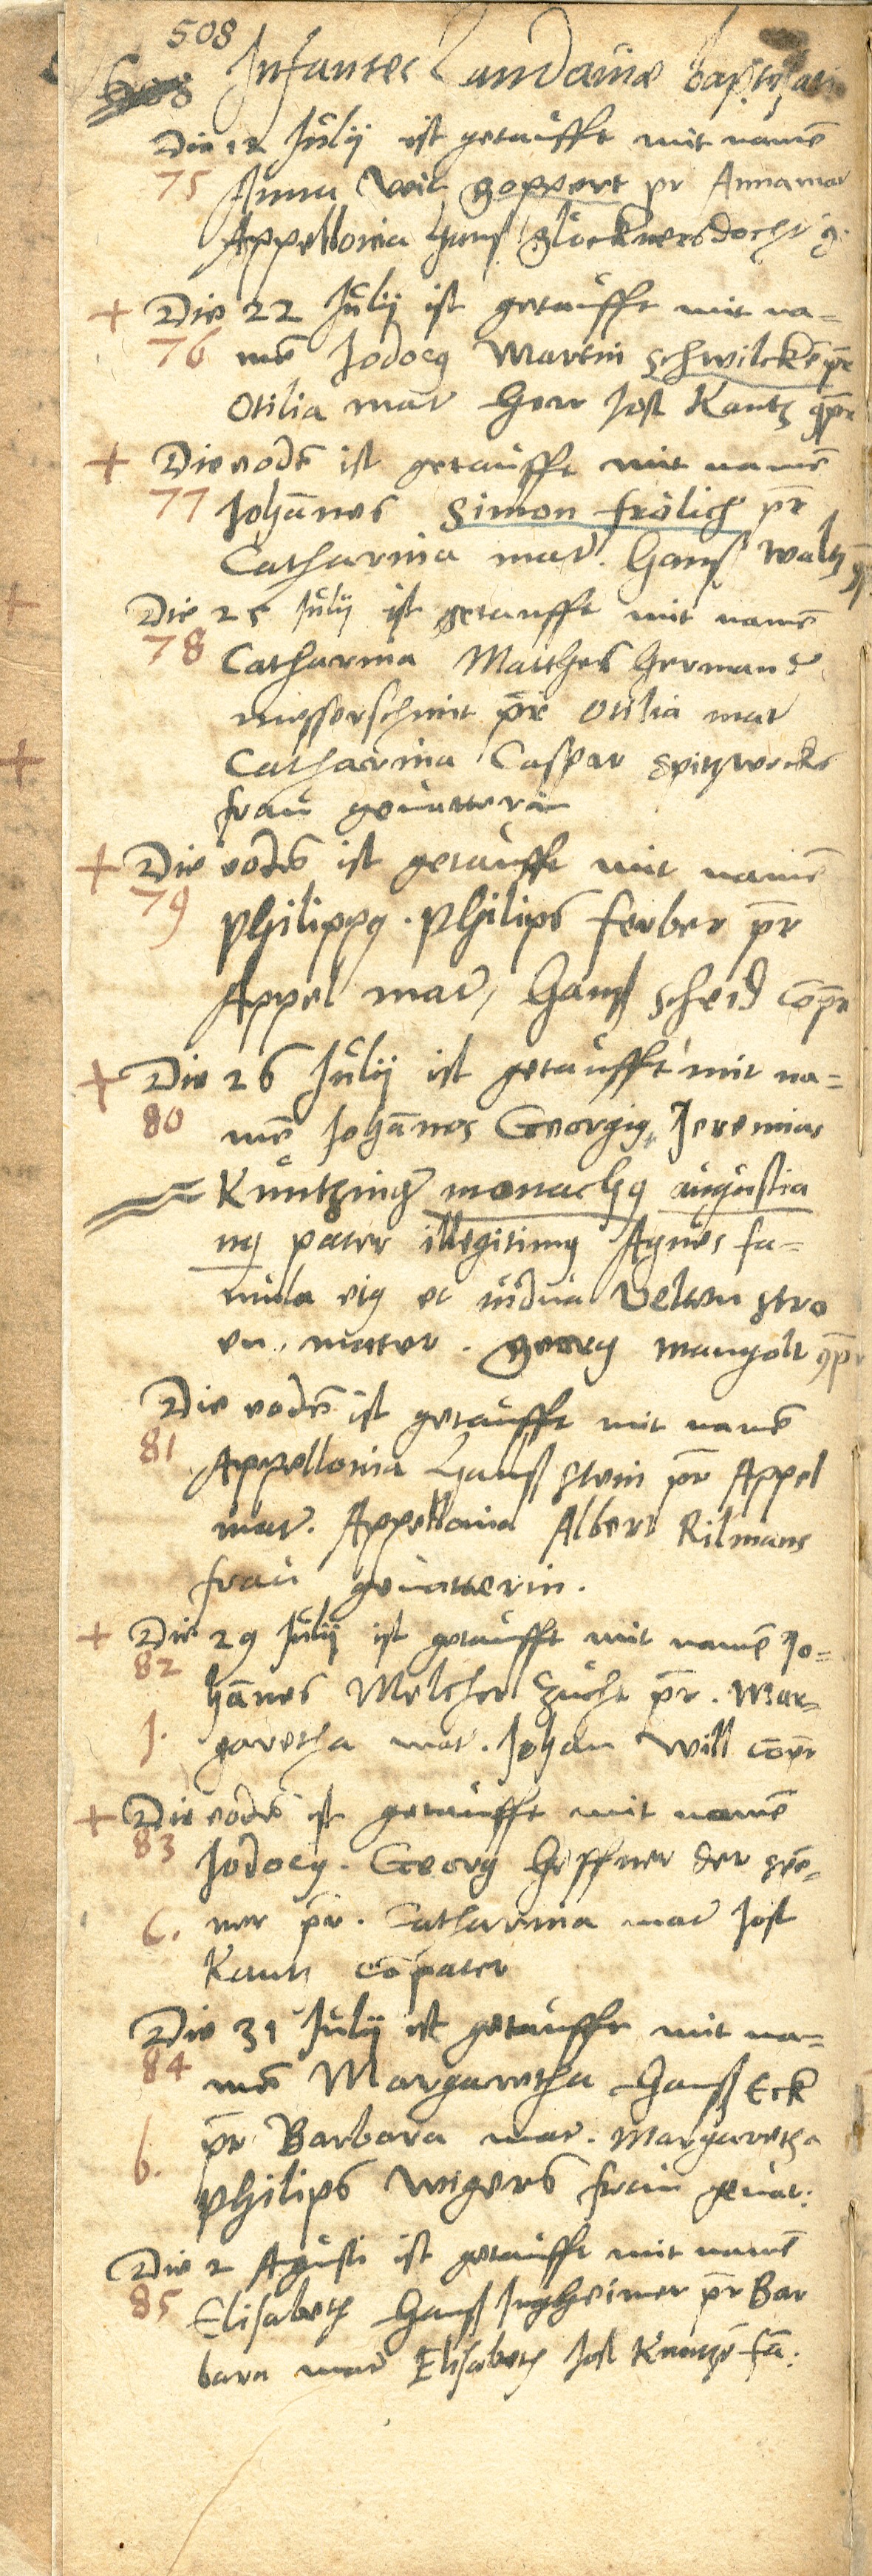 508
Infantes Landaviae baptizati
Die 12 Julij ist getaufft mit namē
75 Anna Veit goppert pr Anna mar
Appellonia Hanß glocknersdocht g.
+ Die 22 Julij ist getaufft mit na=
76 mē Jodocg Martin schwilckē pr̄
Otilia mar Herr Jost Kantz gp̄r
+ Die eodē ist getaufft mit namē
77 Johānes Simon frölich pr̄
Catharina mar. Hanß waltz
+ Die 25 Julij ist getaufft mit namē
78 Catharina Matthes Herman d
messerschmit pr̄ Otilia mar
+ Catharina Caspar spitzwecks
frau gevatterin
+ Die eodē ist getaufft mit namē
79 Philippg. Philips ferber pr̄
Appel mar, Hanß scheid cop̄r
+ Die 26 Julij ist getaufft mit na=
80 mē Johānes Georgig, Jeremias
Kuntzing monachg augustia
ng pater illegitimg Agnes fa=
mula eig et vidua Velten stro
en. mater. georg mangolt gp̄r
Die eodē ist getaufft mit namē
81 Appellonia Hanß stein pr̄ Appel
mar. Appellonia Albert Rilmans
frau gevatterin.
+ Die 29 Julij ist getaufft mit namē Jo=
82 hānes Melcher Zucht pr̄. Mar=
1. garetha mar. Johan Will cop̄r
+ Die eodē ist getaufft mit namē
83 Jodocg. Georg Heffner der
6. ner pr̄. Catharina mar Jost
Kantz cōpater
Die 31 Julij ist getaufft mit na=
84 mē Margaretha Hanß Eck
pr̄ Barbara mar. Margaretha
b. Philips wigers frau gevat:
Die 2 Agusti ist getaufft mit namē
85 Elisabeth Hanß Ingheimer pr̄ Bar
bara mar Elisabeth Jost Kantzē fā: